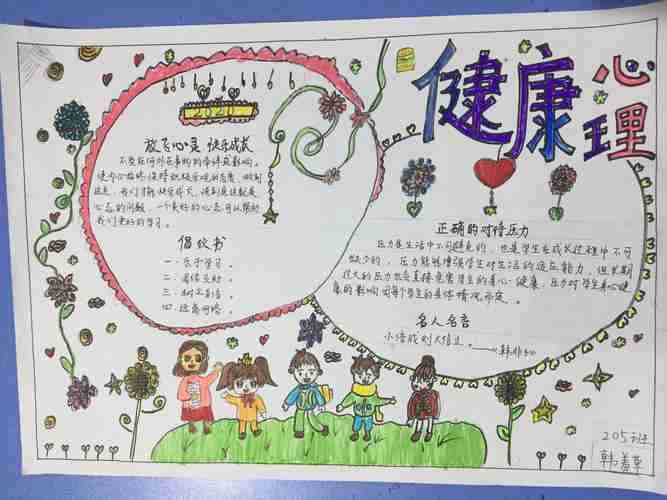 健康
心理
2020
放飞心灵 快乐成长
不受任何外在事物的牵绊与影响。
使内心始终保持积极乐观的态度，做到
这点，我们才能快乐成长，谈到底这就是
心态的问题，一个良好的心态可以帮助
我们更好的学习。
倡议书
一、乐于学习。
二、团结友好。
三、树立自信。
四、远离网络。
正确的对待压力
压力是生活中不可避免的，也是学生在成长过程中不可
缺少的，压力能够增强学生对生活的适应能力，但长期
过大的压力也会直接危害学生的身心健康，压力对学生身心健
康的影响因每个学生的具体情况而定。
名人名言
小信成则大信立。——《韩非子》
205班
韩